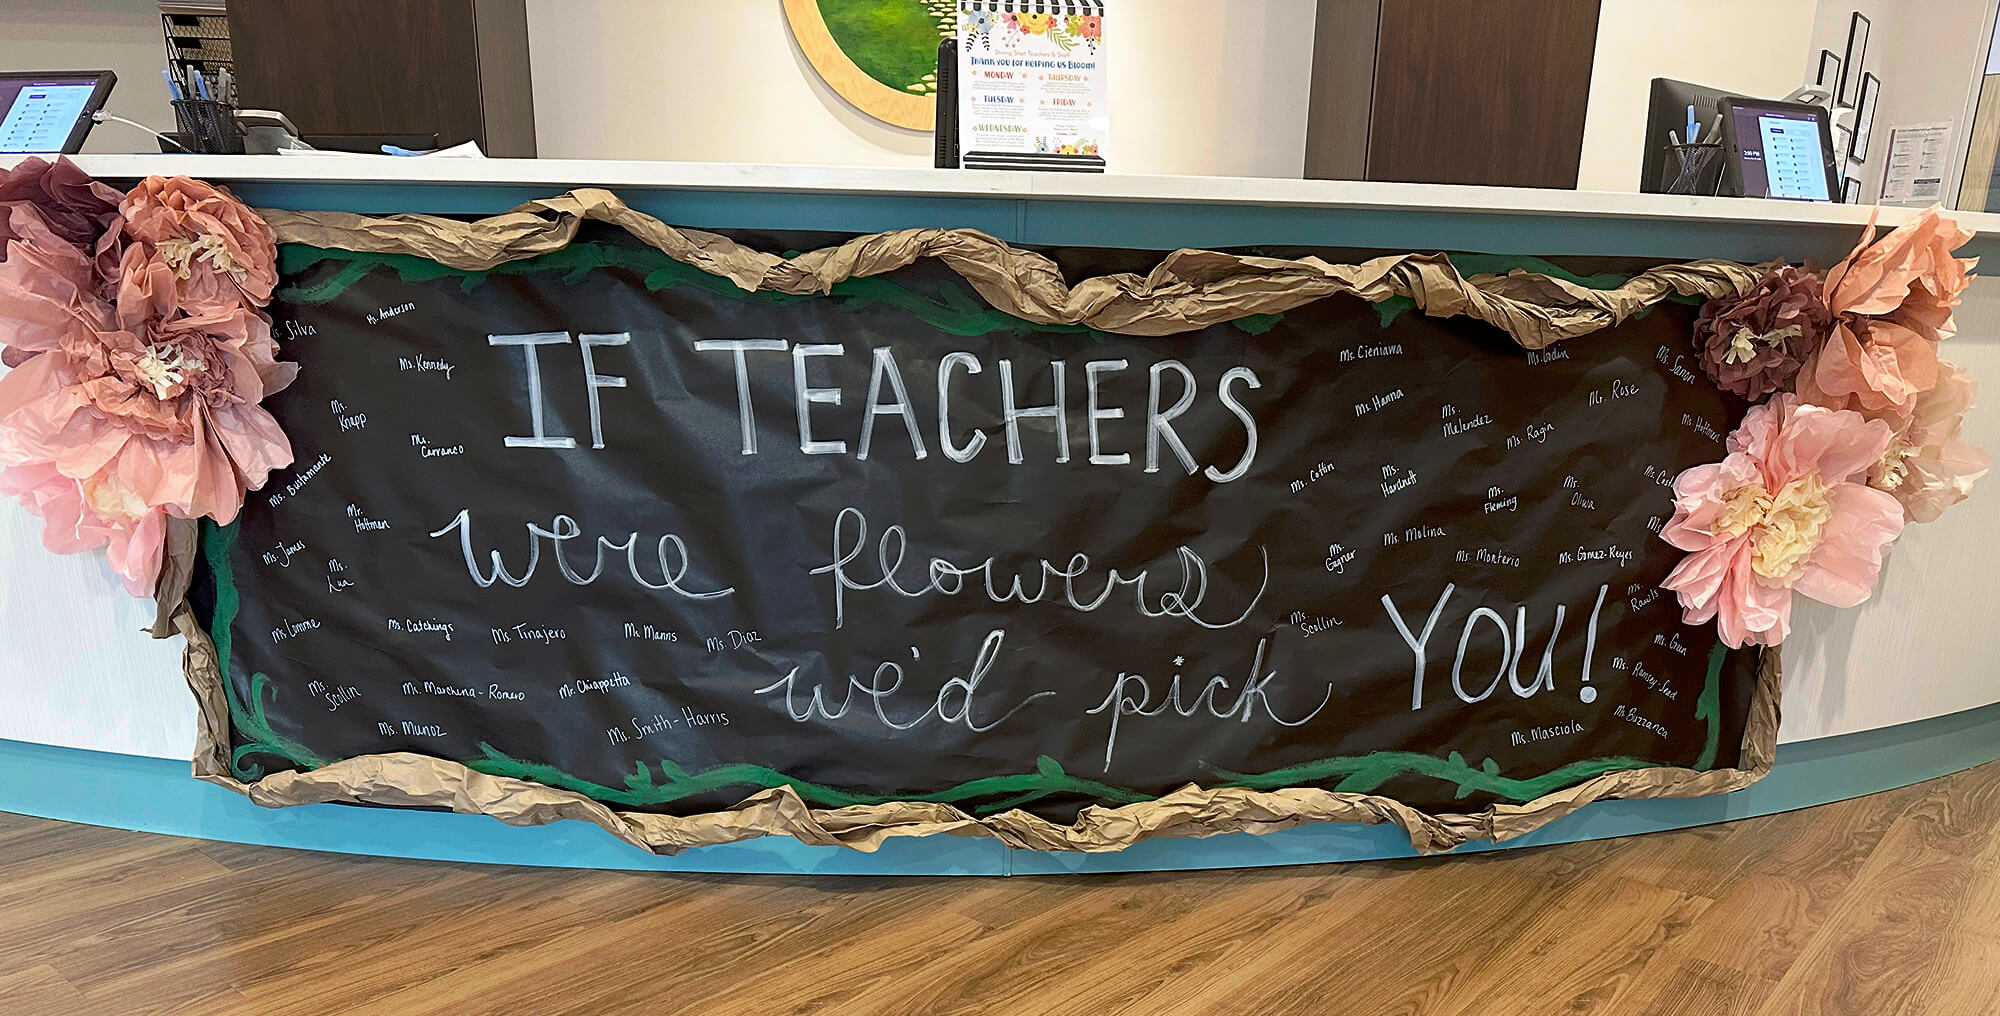 Strong Start Teachers & Staff
Thank you for Helping us Bloom!
MONDAY
THURSDAY
TUESDAY
FRIDAY
WEDNESDAY
IF TEACHERS
were flowers
we'd pick YOU!
Ms. Silva
Mr. Anderson
Ms. Kennedy
Ms. Knapp
Ms. Carranco
Ms. Bustamante
Mr. Hoffman
Ms. James
Ms. Lua
Ms. Lomme
Ms. Catchings
Ms. Tinajero
Ms. Manns
Ms. Diaz
Ms. Scollin
Ms. Marchena-Romero
Mr. Chiappetta
Ms. Munoz
Ms. Smith-Harris
Ms. Cieniawa
Ms. Godin
Ms. Sanon
Ms. Hanna
Ms. Melendez
Mr. Rose
Ms. Ragin
Ms. Hoffman
Ms. Cottin
Ms. Hardnett
Ms. Fleming
Ms. Oliwa
Ms.
Ms. Gagner
Ms. Molina
Ms. Monterio
Ms. Gomez-Reyes
Ms.
Ms. Scollin
Ms. Rawls
Ms. Green
Ms. Ramsey-Sead
Ms. Masciola
Ms. Buzzanca
3:00 PM